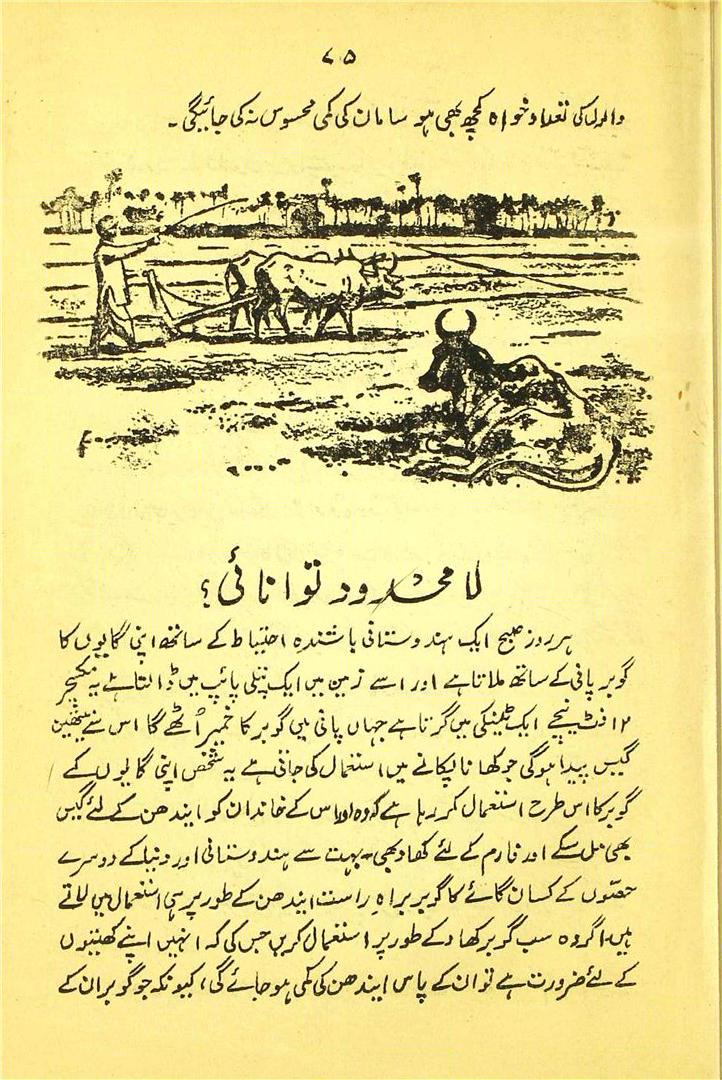 ۷۵
والوں کی تعداد خواہ کچھ بھی ہو سامان کی کمی محسوس نہ کی جائیگی ۔
لا محدود توانائی ؟
ہر روز صبح ایک ہندوستانی باشندہ احتیاط کے ساتھ اپنی گایوں کا
گوبر پانی کے ساتھ ملاتا ہے اور اسے زمین میں ایک پتلی پائپ میں ڈالتا ہے یہ مکسچر
۱۲ فٹ نیچے ایک ٹینکی میں گرتا ہے جہاں پانی میں گوبر کا خمیر اُٹھے گا اس سے میتھین
گیس پیدا ہوگی جو کھانا پکانے میں استعمال کی جاتی ہے یہ شخص اپنی گایوں کے
گوبر کا اس طرح استعمال کر رہا ہے کہ وہ اور اس کے خاندان کو ایندھن کے لئے گیس
بھی مل سکے اور فارم کے لئے کھاد بھی ۔ بہت سے ہندوستانی اور دنیا کے دوسرے
حصّوں کے کسان گائے کا گوبر براہِ راست ایندھن کے طور پر ہی استعمال میں لاتے
ہیں ۔ اگر وہ سب گوبر کھاد کے طور پر استعمال کریں جس کی کہ انہیں اپنے کھیتوں
کے لئے ضرورت ہے تو ان کے پاس ایندھن کی کمی ہو جائے گی ، کیونکہ جو گوبر ان کے